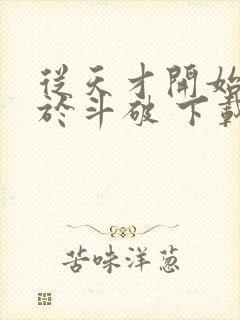 從天才開始
於斗破 下載
苦味洋葱